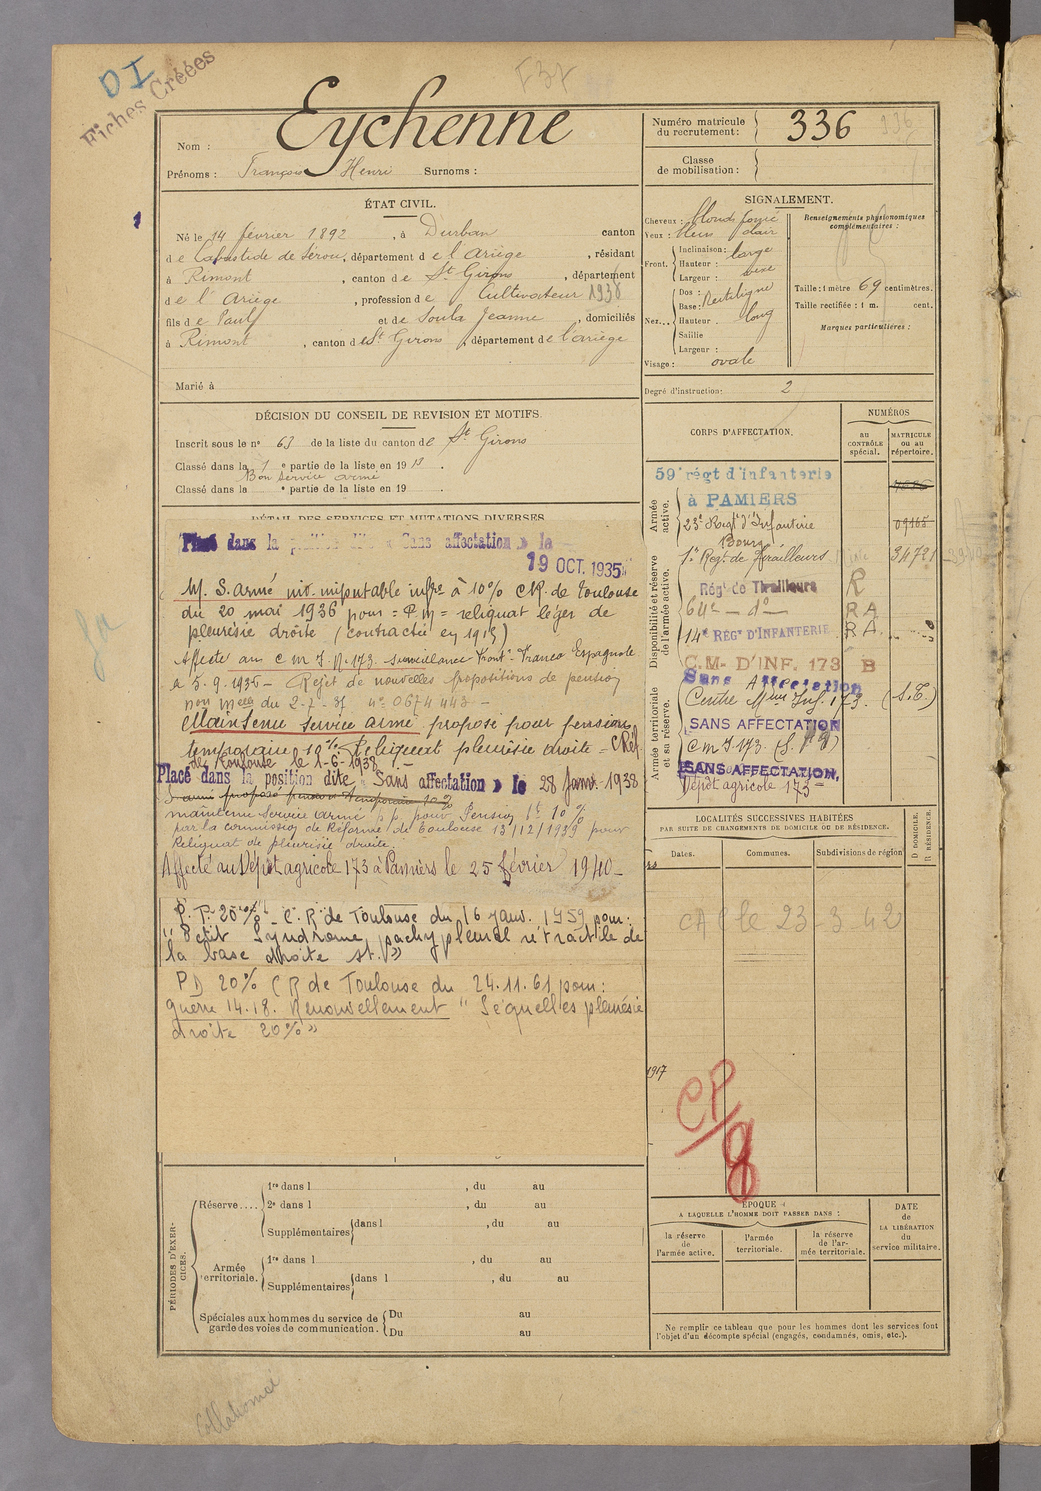 DI
Fiches Créées
F 37
Nom : Eychenne
Prénoms : François Henri Surnoms :
Numéro matricule du recrutement : 336
Classe de mobilisation :
ÉTAT CIVIL.
1
Né le 14 février 1892, à Durban canton
de Labastide de Sérou, département de l'Ariège, résidant
à Rimont, canton de St Girons, département
de l'Ariège, profession de Cultivateur 1938
fils de Paul et de Soula Jeanne, domiciliés
à Rimont, canton de St Girons, département de l'ariège
Marié à
SIGNALEMENT.
Cheveux : blond foncé
Yeux : bleu clair
Front. Inclinaison : large
Hauteur :
Largeur :
Nez... Dos : Rectiligne
Base :
Hauteur : long
Saillie
Largeur :
Visage : ovale
Renseignements physionomiques complémentaires :
Taille : 1 mètre 69 centimètres.
Taille rectifiée : 1 m. cent.
Marques particulières :
Degré d'instruction : 2
DÉCISION DU CONSEIL DE REVISION ET MOTIFS.
Inscrit sous le n° 63 de la liste du canton de St Girons
Classé dans la 1 e partie de la liste en 1913.
Bon service armé
Classé dans la e partie de la liste en 19 .
DÉTAIL DES SERVICES ET MUTATIONS DIVERSES
Placé dans la position dite « Sans affectation » le
19 OCT. 1935
M. S. armé inv. imputable infre à 10% CR. de Toulouse
du 20 mai 1936 pour = P.M = reliquat léger de
pleurésie droite (contractée en 1915)
Affecté au C M I N° 173. surveillance Front. Franco Espagnole
le 5.9.1936 - Rejet de nouvelles propositions de pension
du 2-7-37 n° 0674443 -
Maintenu service armé proposé pour pension
temporaire 10% Reliquat pleurésie droite = C Réf.
de Toulouse le 1-6-1938 -
Placé dans la position dite « Sans affectation » le 28 Janv. 1938
S. armé proposé pension temporaire 10%
maintenu service armé p p. pour Pension 10%
par la commission de Réforme de Toulouse 13/12/1939 pour
Reliquat de pleurésie droite.
Affecté au Dépôt agricole 173 à Pamiers le 25 février 1940 -
P.P. 20% - C.R. de Toulouse du 16 janv. 1959 pour :
"Petit Syndrome pachypleural rétractile de
la base droite st."
PD 20% CR de Toulouse du 24.11.61 pour :
guerre 14.18. Renouvellement "Séquelles pleurésie
droite 20%"
CORPS D'AFFECTATION.
NUMÉROS
AU CONTRÔLE spécial.
MATRICULE ou au répertoire.
Armée active.
59e régt d'infanterie
à PAMIERS
23e Régt d'Infanterie
Bourg
09165
Disponibilité et réserve de l'armée active.
1er Régt de Tirailleurs 34721
Régt de Tirailleurs R
64e - do - RA
14e RÉGt D'INFANTERIE RA.
C.M. D'INF. 173 B
Armée territoriale et sa réserve.
Sans Affectation
Centre Mque Inf. 173. (S.F.)
SANS AFFECTATION
C m I 173.
SANS AFFECTATION,
Dépôt agricole 173 -
LOCALITÉS SUCCESSIVES HABITÉES
PAR SUITE DE CHANGEMENTS DE DOMICILE OU DE RÉSIDENCE.
Dates.
Communes.
Subdivisions de région
D DOMICILE.
R RÉSIDENCE.
CAC le 23-3-42
1917
CP/g
PÉRIODES D'EXERCICES.
Réserve.... 1re dans l , du au
2e dans l , du au
Supplémentaires dans l , du au
Armée territoriale. 1re dans l , du au
Supplémentaires dans l , du au
Spéciales aux hommes du service de garde des voies de communication. Du au
Du au
ÉPOQUE
A LAQUELLE L'HOMME DOIT PASSER DANS :
la réserve de l'armée active.
l'armée territoriale.
la réserve de l'armée territoriale.
DATE de LA LIBÉRATION du service militaire.
Ne remplir ce tableau que pour les hommes dont les services font
l'objet d'un décompte spécial (engagés, condamnés, omis, etc.).
Collationné